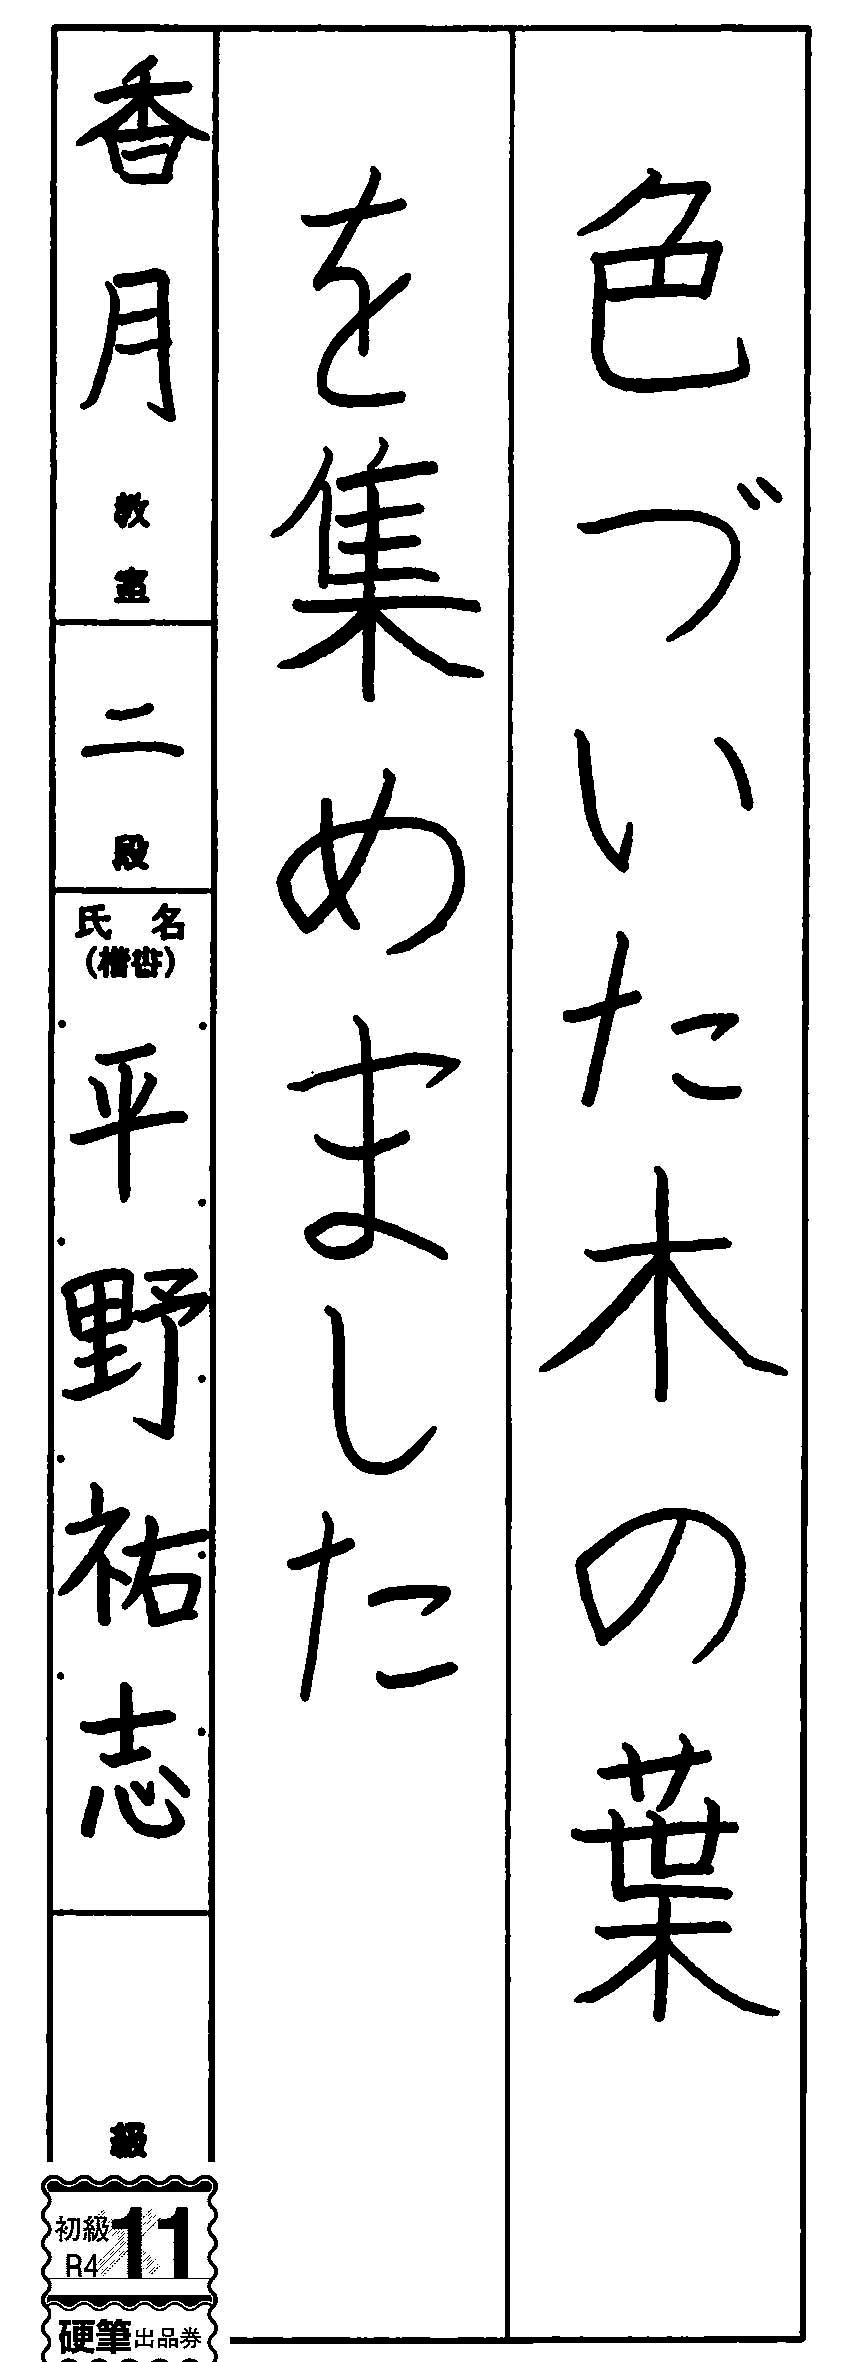 色づいた木の葉
を集めました
香月教室
二段
氏名
(楷書)
平野祐志
級
初級
R4
11
硬筆出品券